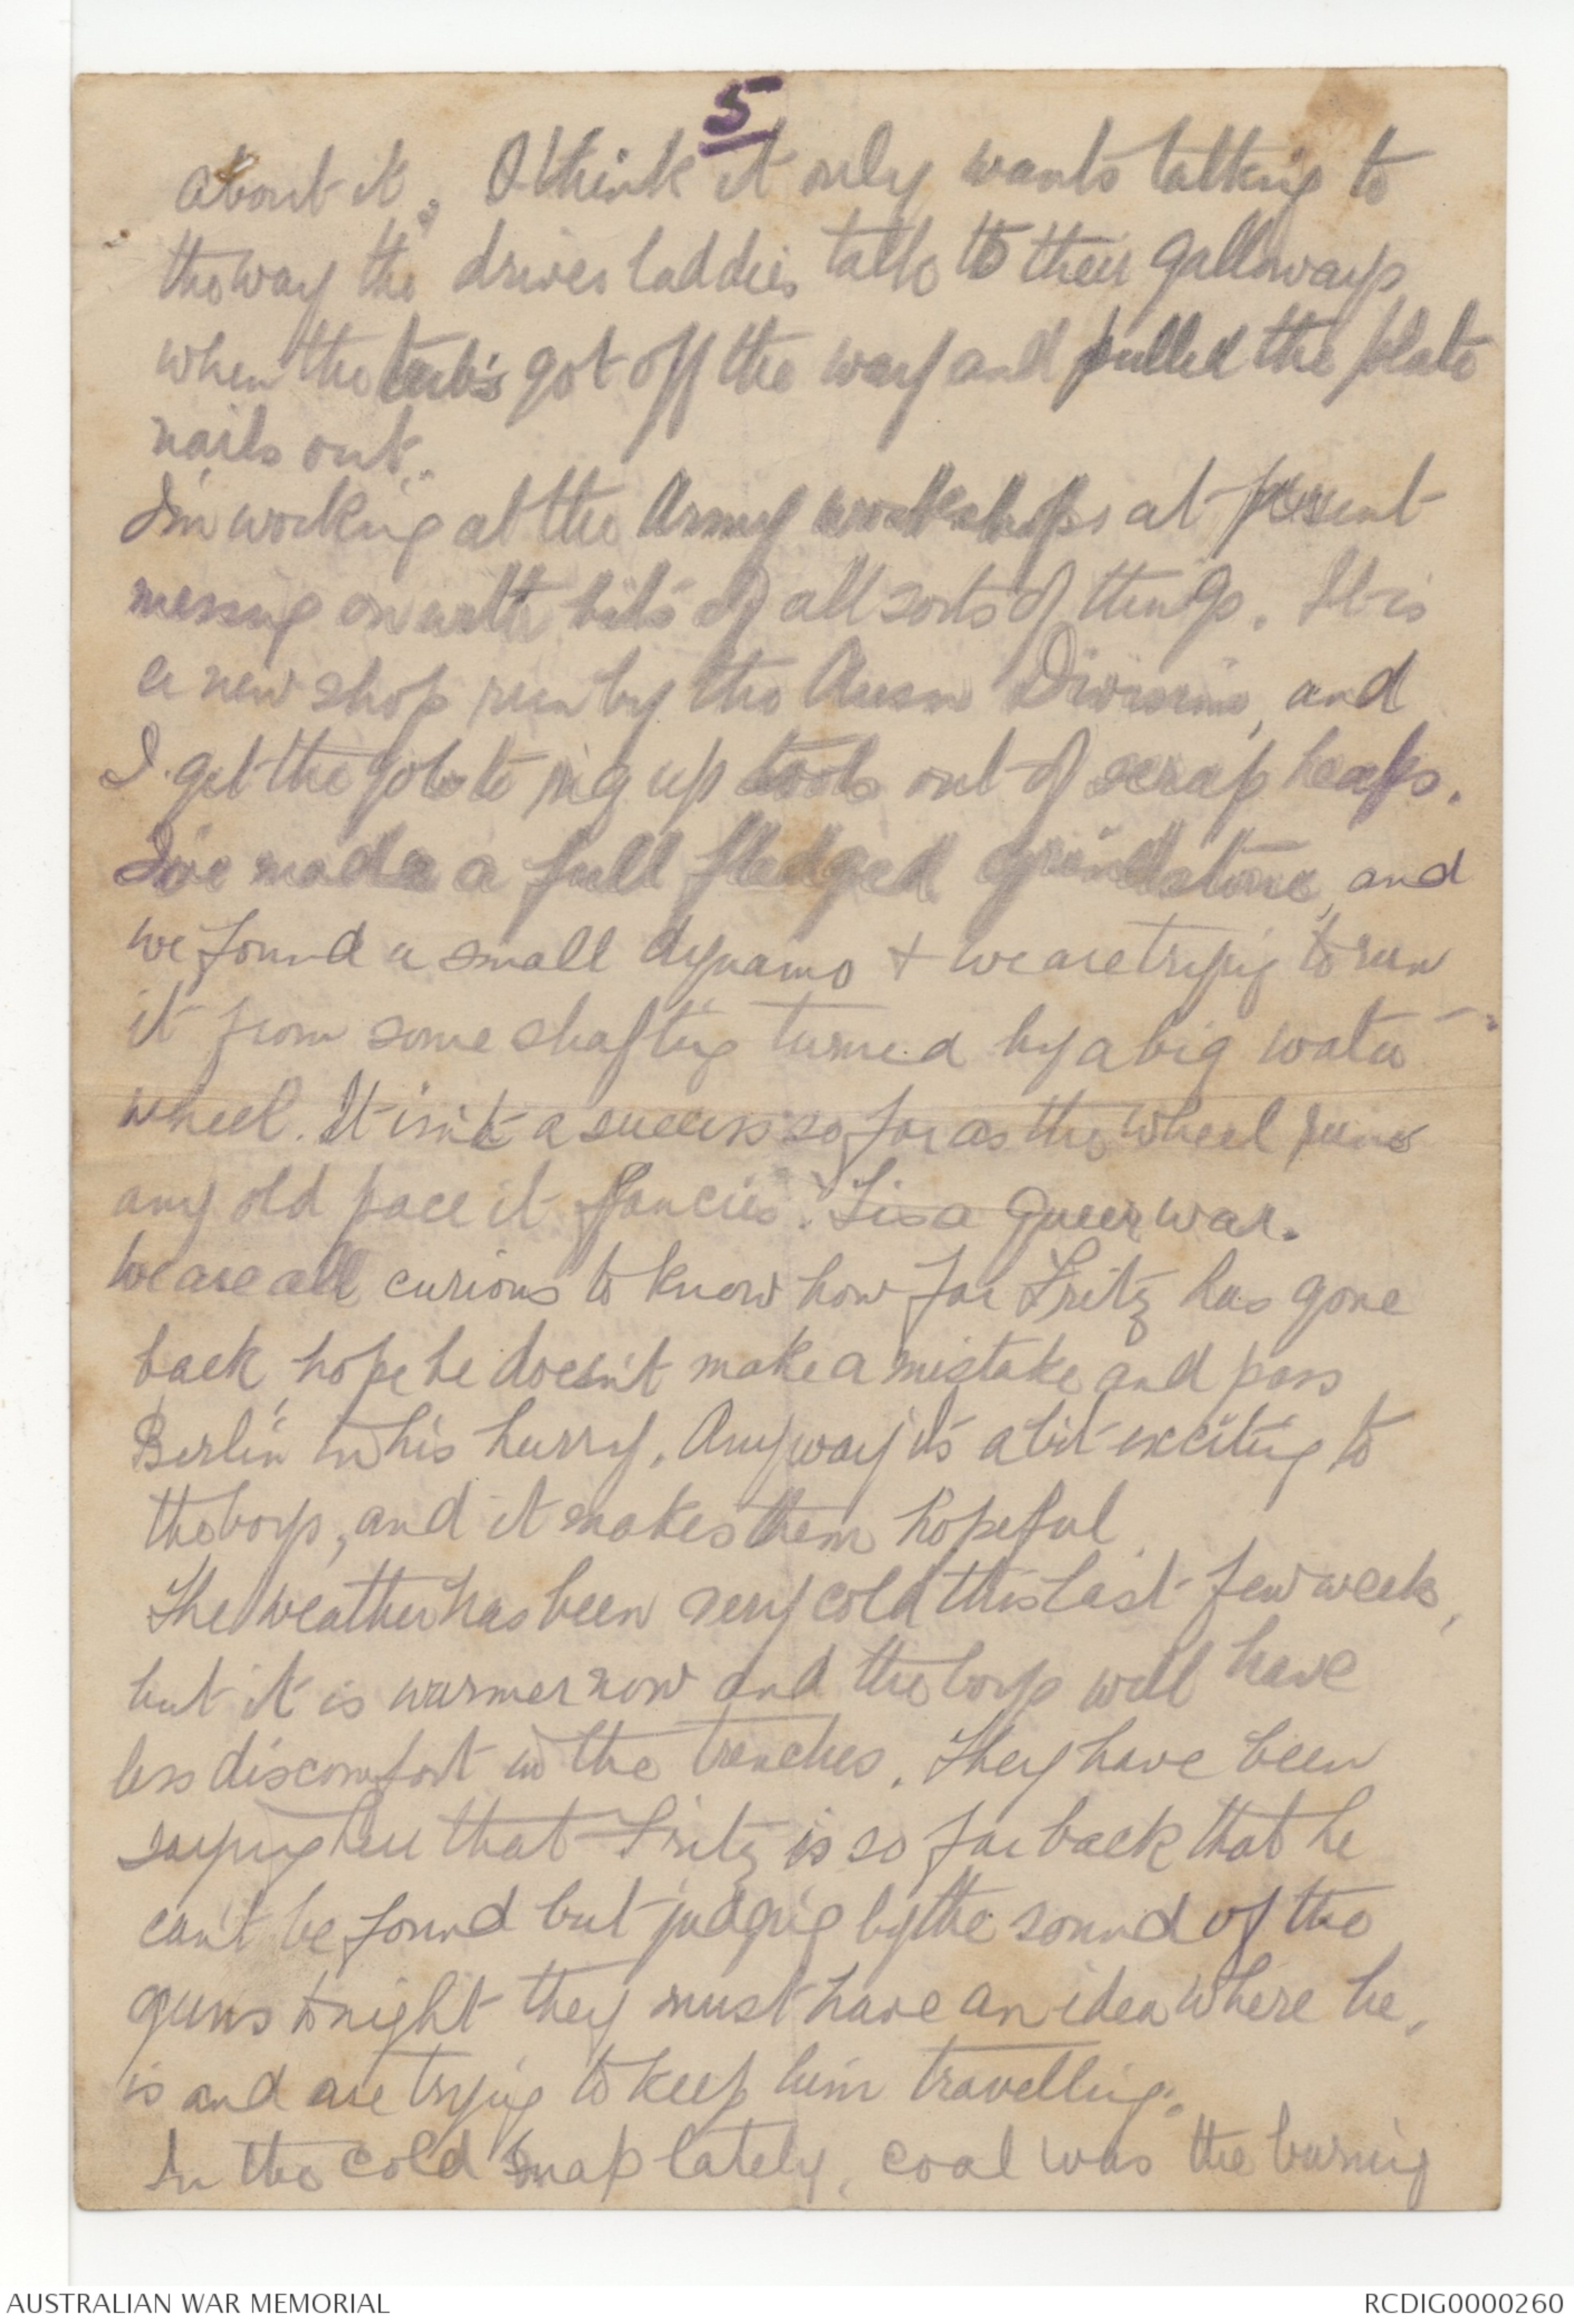 5
about it. I think it only wants talking to
the way the drives laddies talk to their galloways
when the tub's got off the way and pulled the plate
nails out.
I'm working at the Army workshops at present
messing on with bits of all sorts of things. It is
a new shop run by the Ausn Divisions, and
I get the job to rig up tools out of scrap heaps.
I've made a full fledged grindstone, and
we found a small dynamo + we are trying to run
it from some shafting turned by a big water-
wheel. It isn't a success so far as the wheel runs
any old pace it fancies. 'Tis a queer war.
We are all curious to know how far Fritz has gone
back, hope he doesn't make a mistake and pass
Berlin in his hurry. Anyway it's a bit exciting to
the boys, and it makes them hopeful.
The weather has been very cold this last few weeks,
but it is warmer now and the boys will have
less discomfort in the trenches. They have been
saying here that Fritz is so far back that he
can't be found but judging by the sound of the
guns tonight they must have an idea where he,
is and are trying to keep him travelling.
In the cold snap lately, coal was the burning
AUSTRALIAN WAR MEMORIAL
RCDIG0000260